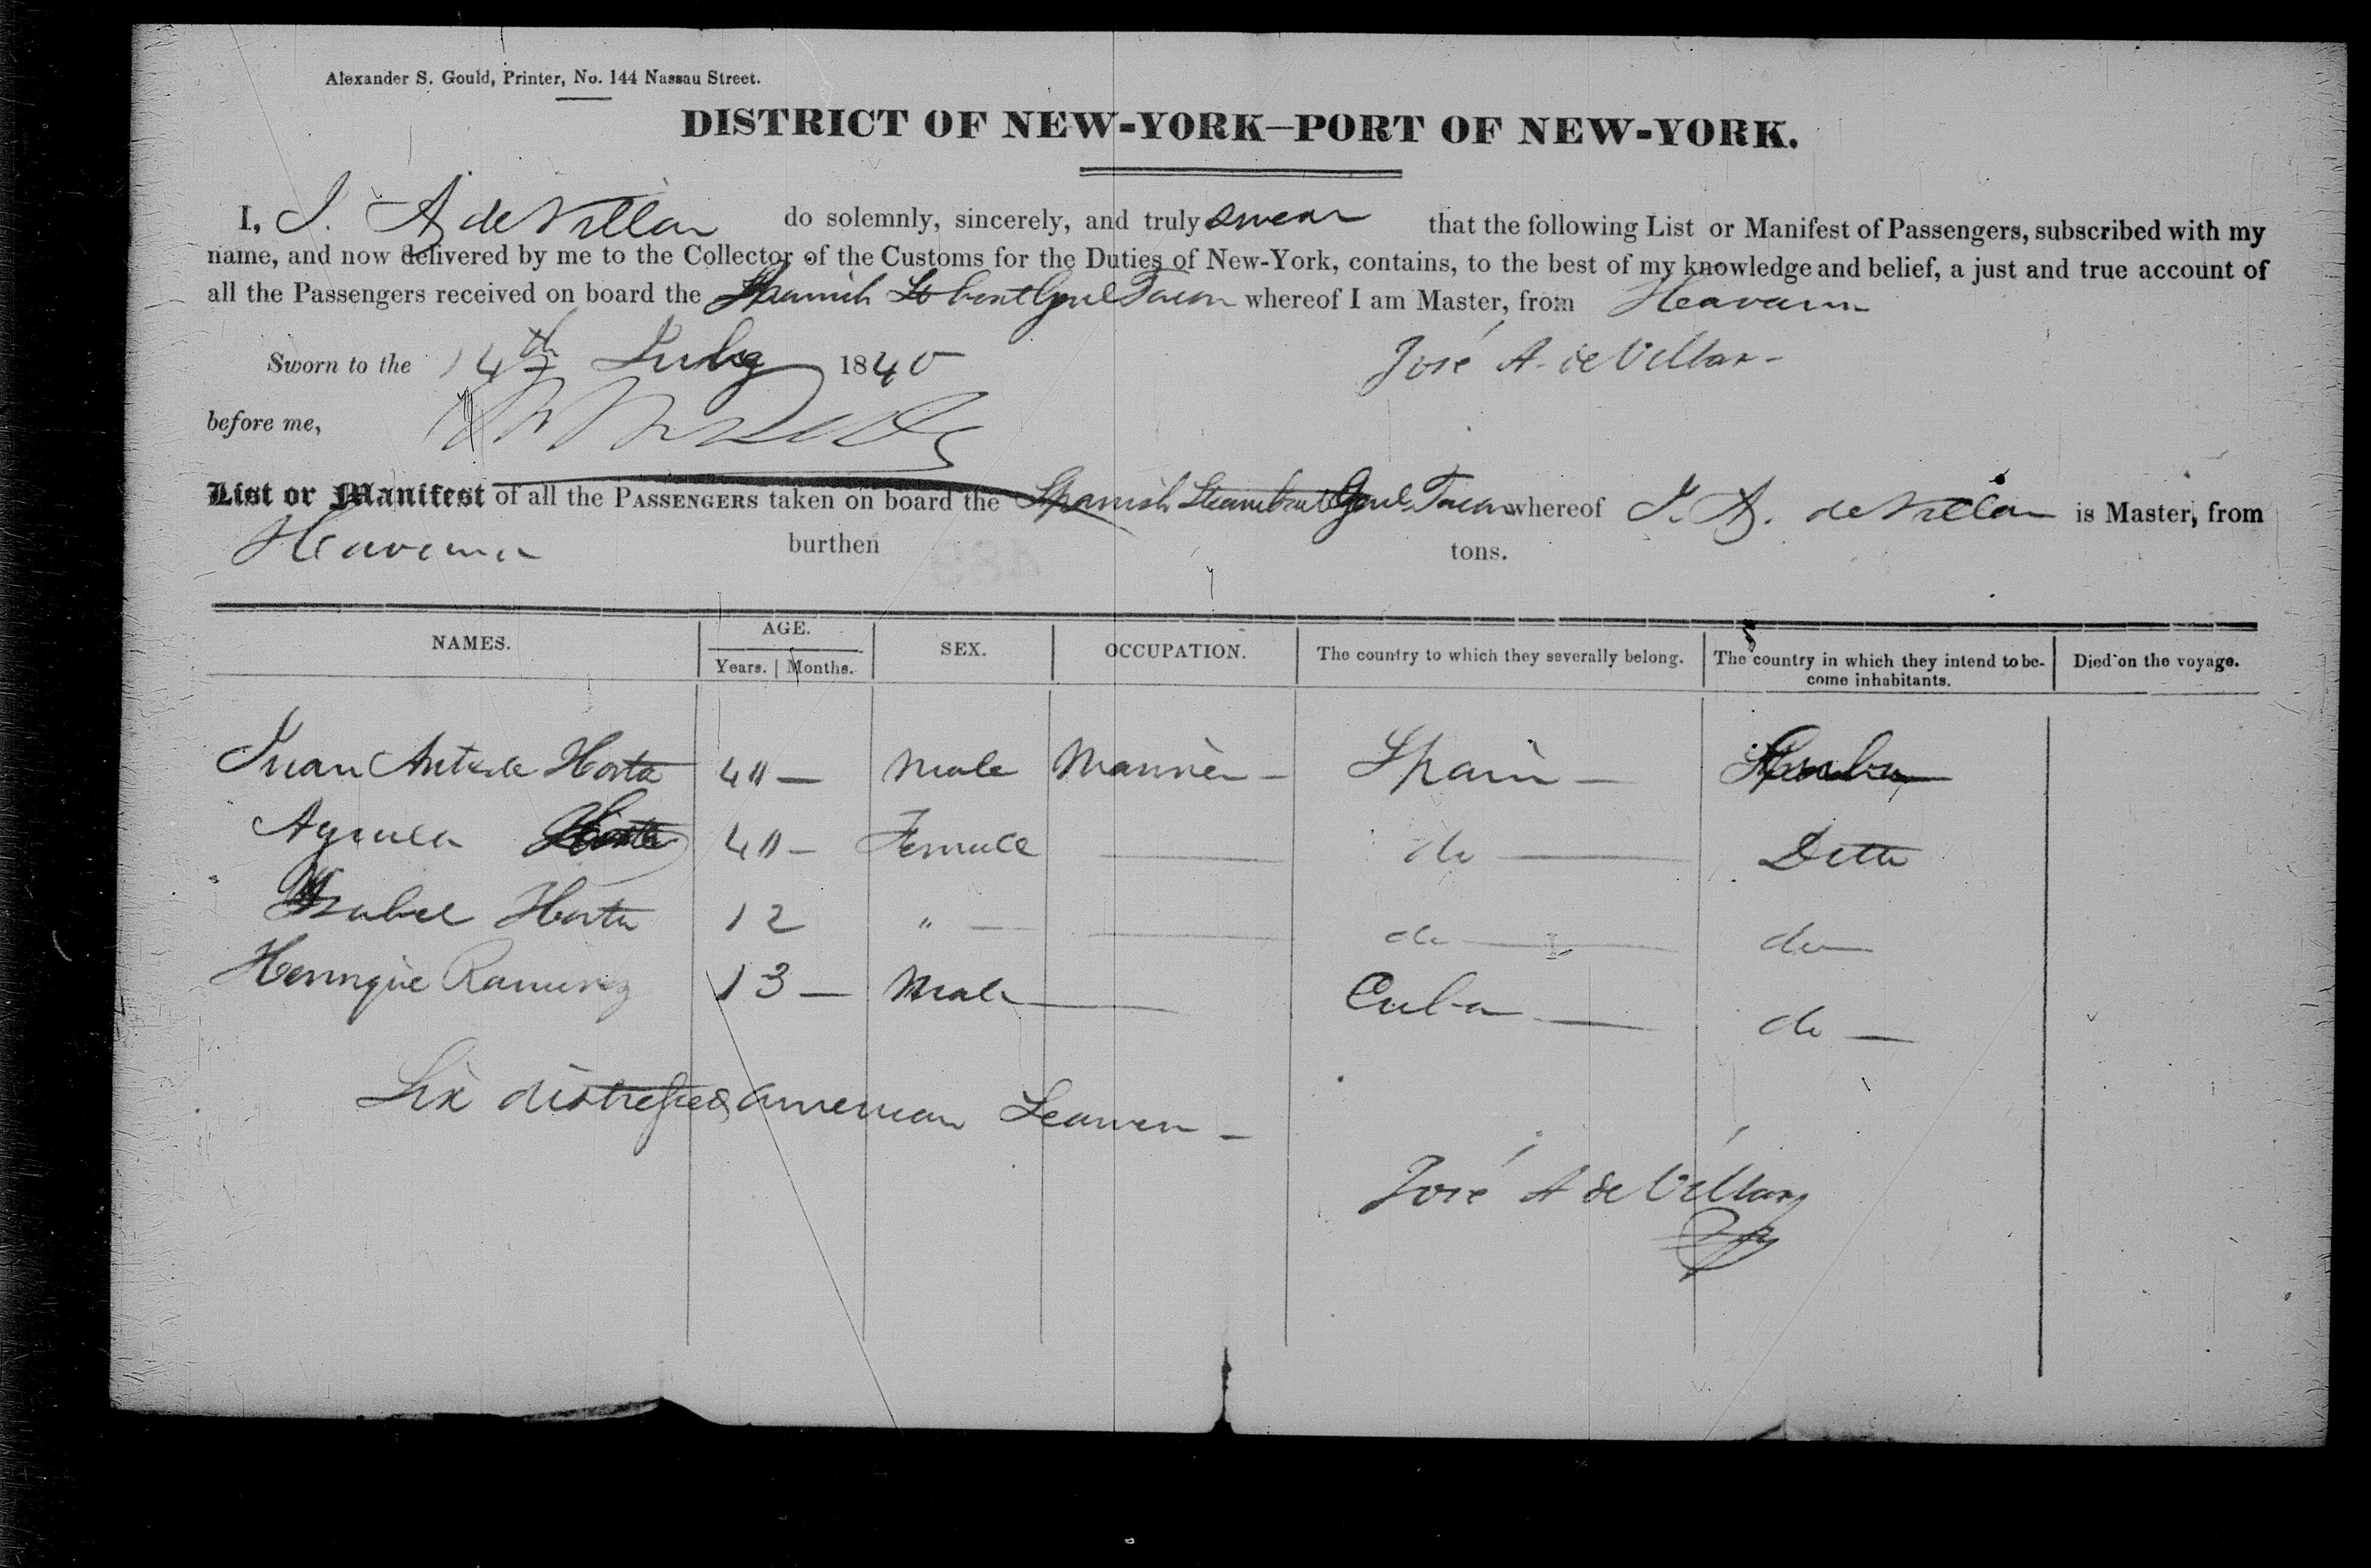 Alexander S. Gould, Printer, No. 144 Nassau Street.
DISTRICT OF NEW-YORK—PORT OF NEW-YORK.
I, J. A. de Villar do solemnly, sincerely, and truly swear that the following List or Manifest of Passengers, subscribed with my
name, and now delivered by me to the Collector of the Customs for the Duties of New-York, contains, to the best of my knowledge and belief, a just and true account of
all the Passengers received on board the Spanish St boat Genl Tacon whereof I am Master, from Havana
Sworn to the 14th July 1840 José A. de Villar
before me,
List or Manifest of all the PASSENGERS taken on board the Spanish Steamboat Genl Tacon whereof J. A. de Villar is Master, from
Havana burthen tons.
NAMES. AGE. Years. Months. SEX. OCCUPATION. The country to which they severally belong. The country in which they intend to become inhabitants. Died on the voyage.
Juan Horta 40 — Male Mariner — Spain — Cuba
Horta 40 — Female do Ditto
Ysabel Horta 12 " — do do
Henrique Ramirez 13 — Male Cuba do —
Six distressed American Seamen —
José A de Villar